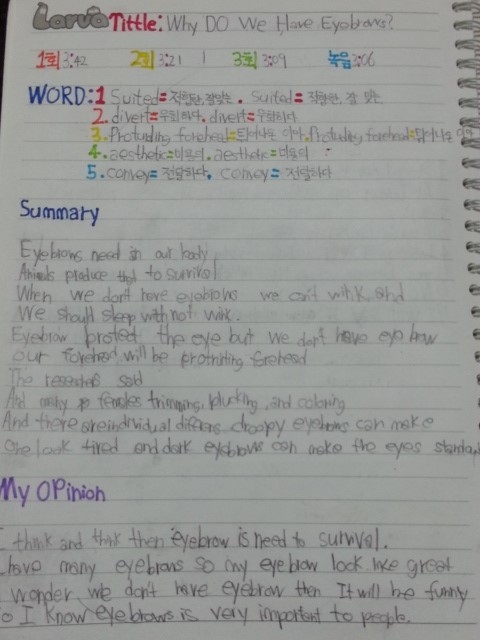 Larva Tittle: Why DO We Have Eyebrows?
1회 3:42 2회 3:21 | 3회 3:09 녹음 3:06
WORD: 1 Suited = 적합한, 잘맞는. Suited = 적합한, 잘 맞는
2. divert = 우회하다. divert = 우회하다.
3. Protruding forehead = 튀어나온 이마. Protruding forehead = 튀어나온 이마
4. aesthetic = 미용의. aesthetic = 미용의
5. convey = 전달하다. convey = 전달하다
Summary
Eyebrows need in our body
Animals produce that to survival
When we don't have eyebrows we can't wink and
We should sleep with not wink.
Eyebrow protect the eye but we don't have eye brow
our forehead will be protruding forehead
The said
And many females trimming, plucking, and coloring
And there are individual differs droopy eyebrows can make
One look tired and dark eyebrows can make the eyes
My OPinion
I think and think then eyebrow is need to survival.
I have many eyebrows so my eyebrow look like great
I wonder we don't have eyebrow then It will be funny
So I know eyebrows is very important to people.